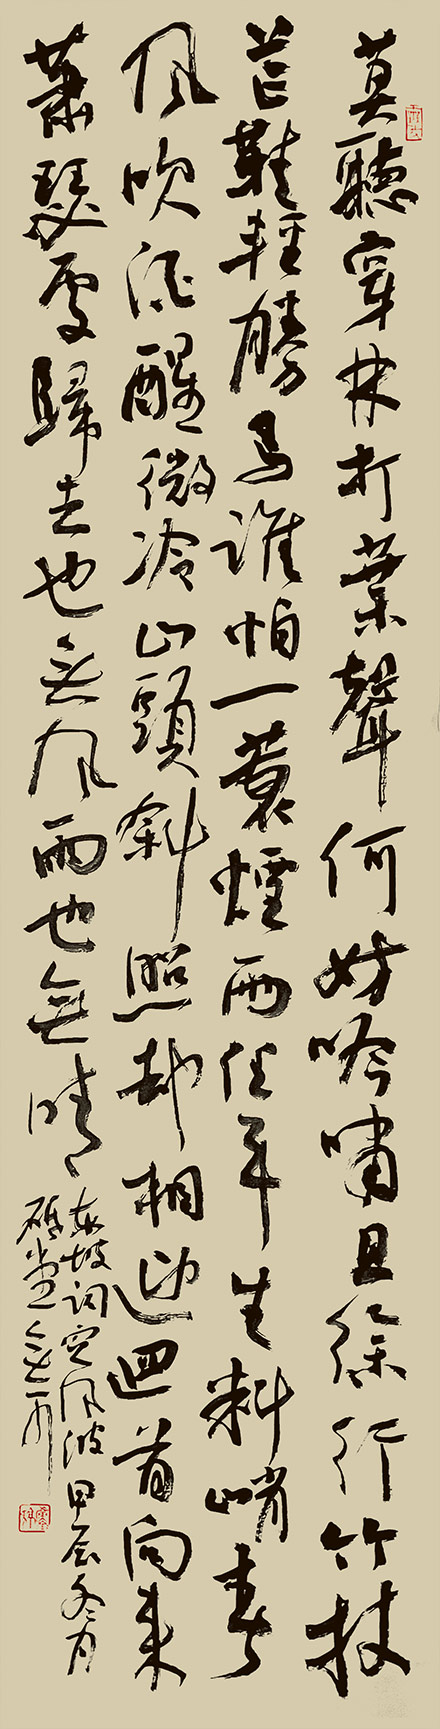 莫聽穿林打葉聲何妨吟嘯且徐行竹杖
芒鞋輕勝馬誰怕一蓑煙雨任平生料峭春
風吹酒醒微冷山頭斜照却相迎迴首向來
蕭瑟處歸去也無風雨也無晴
東坡詞定風波甲辰冬月